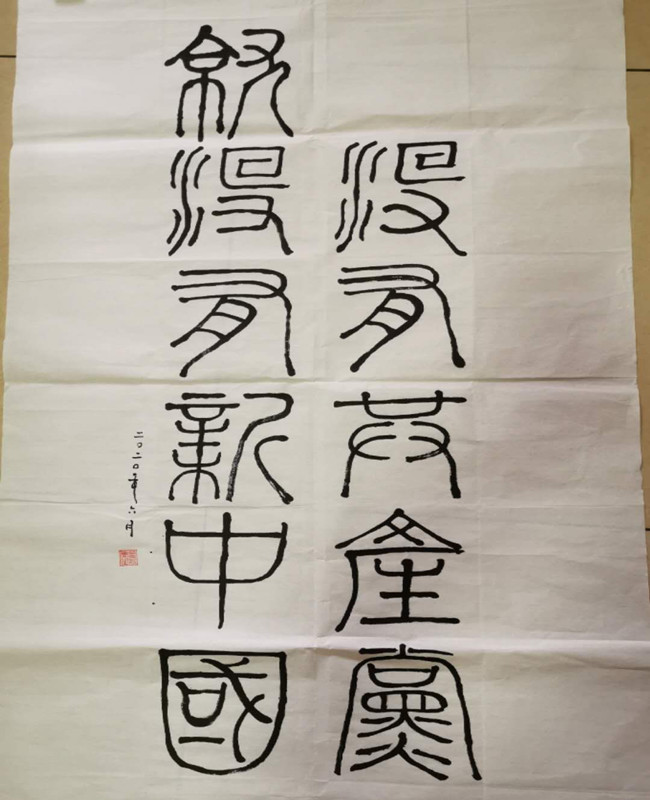 沒有共產黨
就沒有新中國
二〇二〇年六月